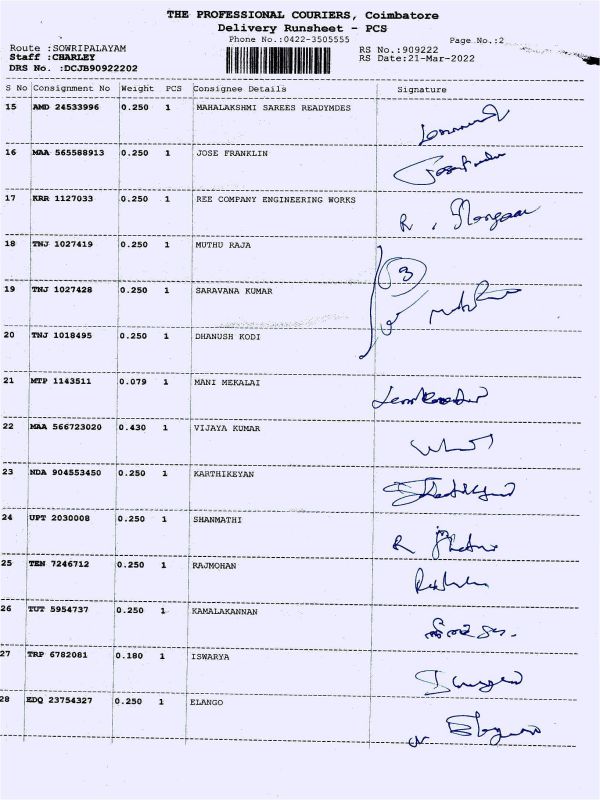 THE PROFESSIONAL COURIERS, Coimbatore
Delivery Runsheet - PCS
Phone No.:0422-3505555
Page No.:2
Route :SOWRIPALAYAM
RS No.:909222
Staff :CHARLEY
RS Date:21-Mar-2022
DRS No. :DCJB90922202
S No Consignment No Weight PCS Consignee Details Signature
15 AMD 24533996 0.250 1 MAHALAKSHMI SAREES READYMDES
16 MAA 565588913 0.250 1 JOSE FRANKLIN
17 KRR 1127033 0.250 1 REE COMPANY ENGINEERING WORKS
R
18 TNJ 1027419 0.250 1 MUTHU RAJA
3
19 TNJ 1027428 0.250 1 SARAVANA KUMAR
20 TNJ 1018495 0.250 1 DHANUSH KODI
21 MTP 1143511 0.079 1 MANI MEKALAI
22 MAA 566723020 0.430 1 VIJAYA KUMAR
23 NDA 904553450 0.250 1 KARTHIKEYAN
24 UPT 2030008 0.250 1 SHANMATHI
R
25 TEN 7246712 0.250 1 RAJMOHAN
26 TUT 5954737 0.250 1 KAMALAKANNAN
27 TRP 6782081 0.180 1 ISWARYA
28 EDQ 23754327 0.250 1 ELANGO